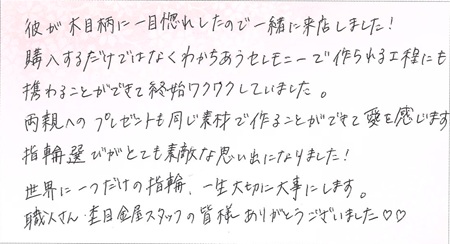 彼が木目柄に一目惚れしたので一緒に来店しました!
購入するだけではなくわかちあうセレモニーで作られる工程にも
携わることができて終始ワクワクしていました。
両親へのプレゼントも同じ素材で作ることができて愛を感じます
指輪選びがとても素敵な思い出になりました!
世界に一つだけの指輪、一生大切に大事にします。
職人さん・杢目金屋スタッフの皆様ありがとうございました♡♡